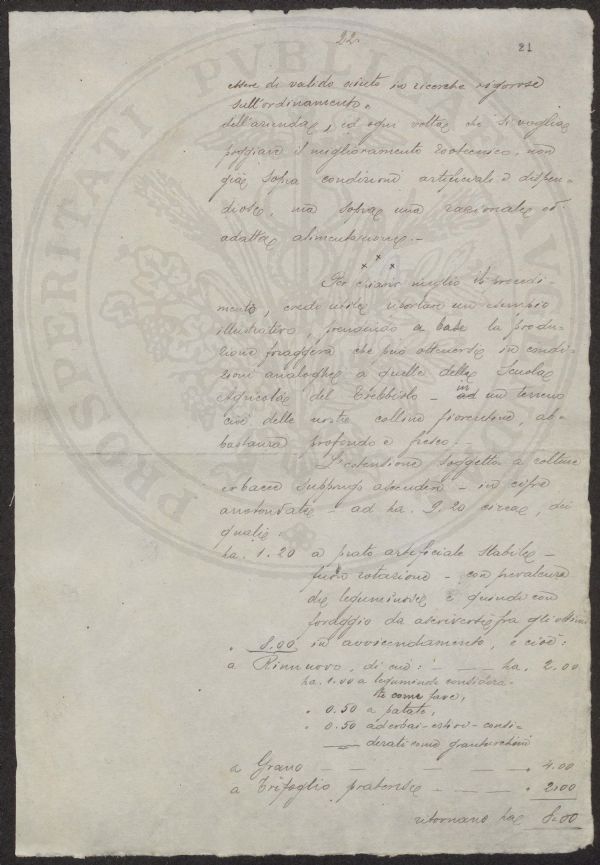 22.
21
essere di valido aiuto in ricerche rigorose
sull'ordinamento
dell'azienda, ed ogni volta che si voglia
poggiare il miglioramento zootecnico, non
già sopra condizioni artificiali e dispen-
diose, ma sopra una razionale ed
adatta alimentazione.-
x x x
Per chiarir meglio il procedi-
mento, credo utile riportare un esempio
illustrativo, prendendo a base la produ-
zione foraggera che può ottenersi in condi-
zioni analoghe a quelle della Scuola
Agricola del Trebbiolo - in un terreno
cioè delle nostre colline fiorentine, ab-
bastanza profondo e fresco.-
L'estensione soggetta a colture
erbacee suppongo ascenda - in cifre
arrotondate - ad ha. 9,20 circa, dei
quali:
ha. 1.20 a prato artificiale stabile -
fuori rotazione - con prevalenza
di leguminose e quindi con
foraggio da ascriversi fra gli ottimi
" 8.00 in avvicendamento, e cioè:
a Rinnuovo, di cui: - — — ha. 2.00
ha. 1.00 a leguminose considera-
te come fave,
" 0.50 a patate,
" 0.50 ad erbai-estivi-consi-
derati come granturchini
a Grano — — — — — " 4.00
a Trifoglio pratense — — — " 2.00
ritornano ha. 8.00
PROSPERITATI PVBLICAE